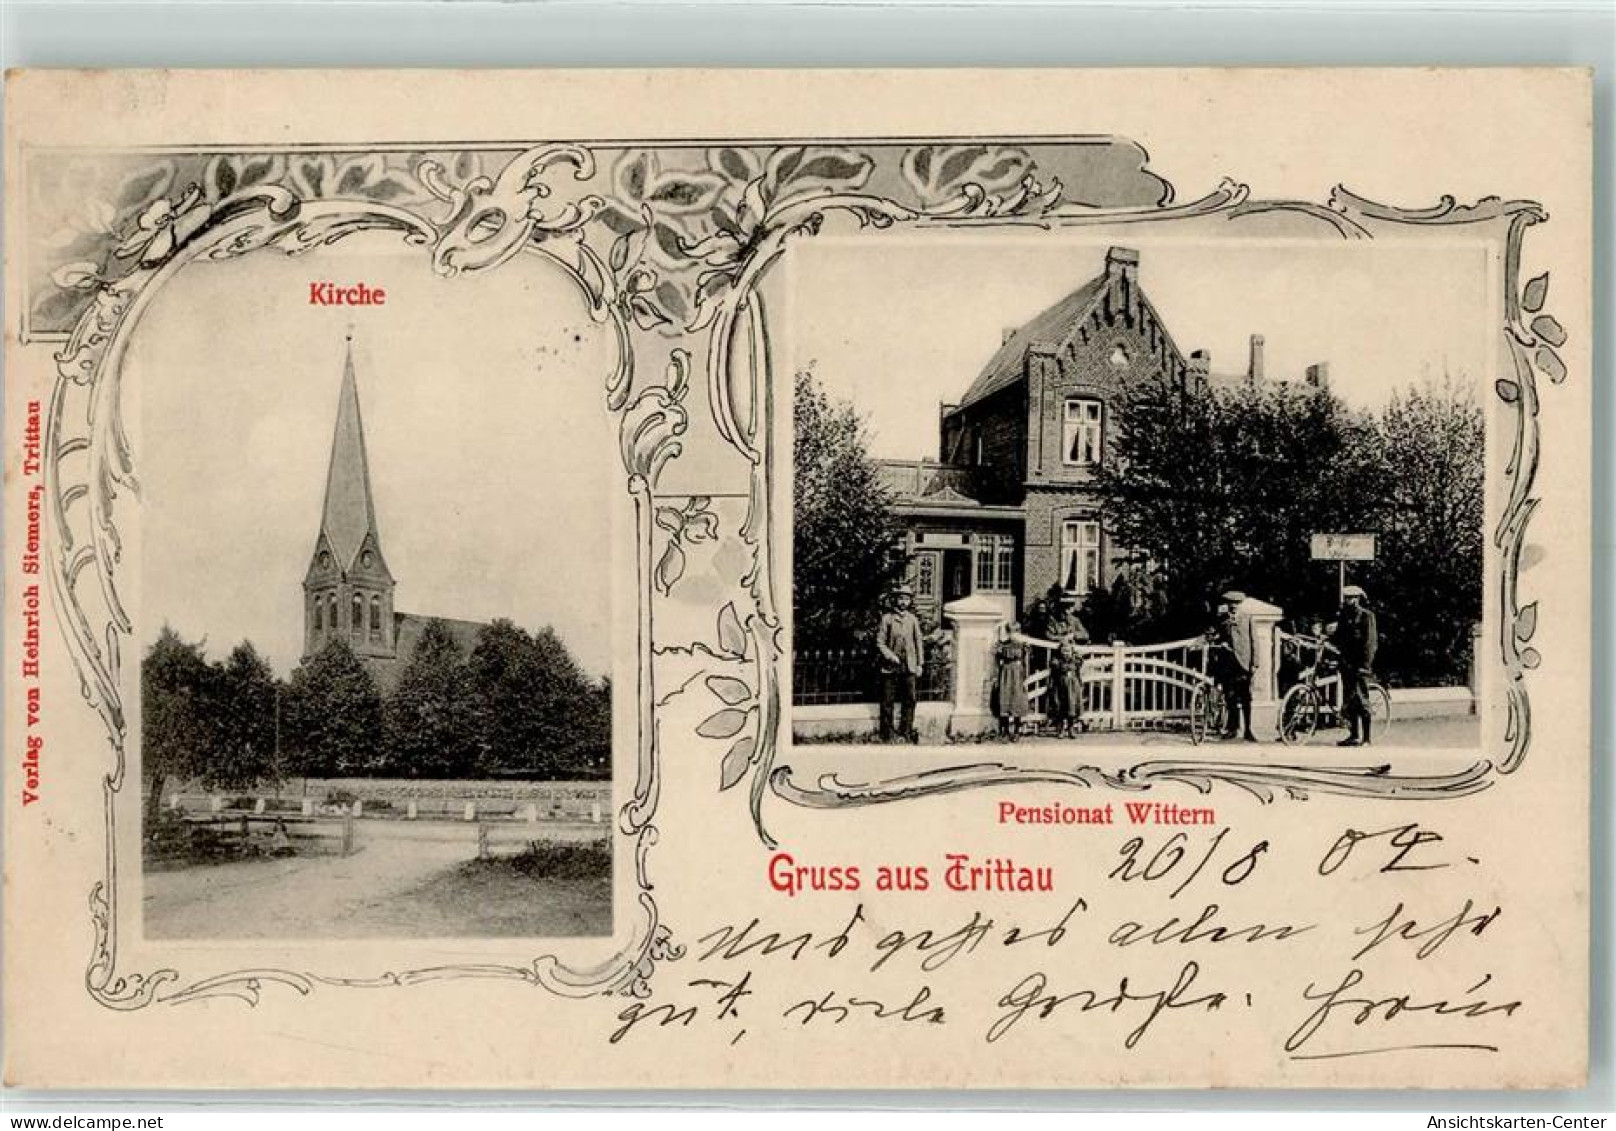 Kirche
Verlag von Heinrich Siemers, Trittau
Pensionat Wittern
Gruss aus Trittau
26/8 04.
Uns geht es allen sehr
gut, viele Grüße.
www.delcampe.net
tpkaiser
Ansichtskarten-Center